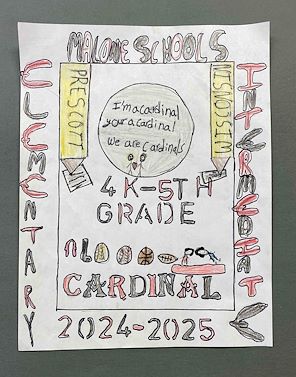 MALONE SCHOOLS
ELEMENTARY
PRESCOTT
I'm a cardinal
your a cardinal
we are cardinals
4K-5TH
GRADE
CARDINAL
2024-2025